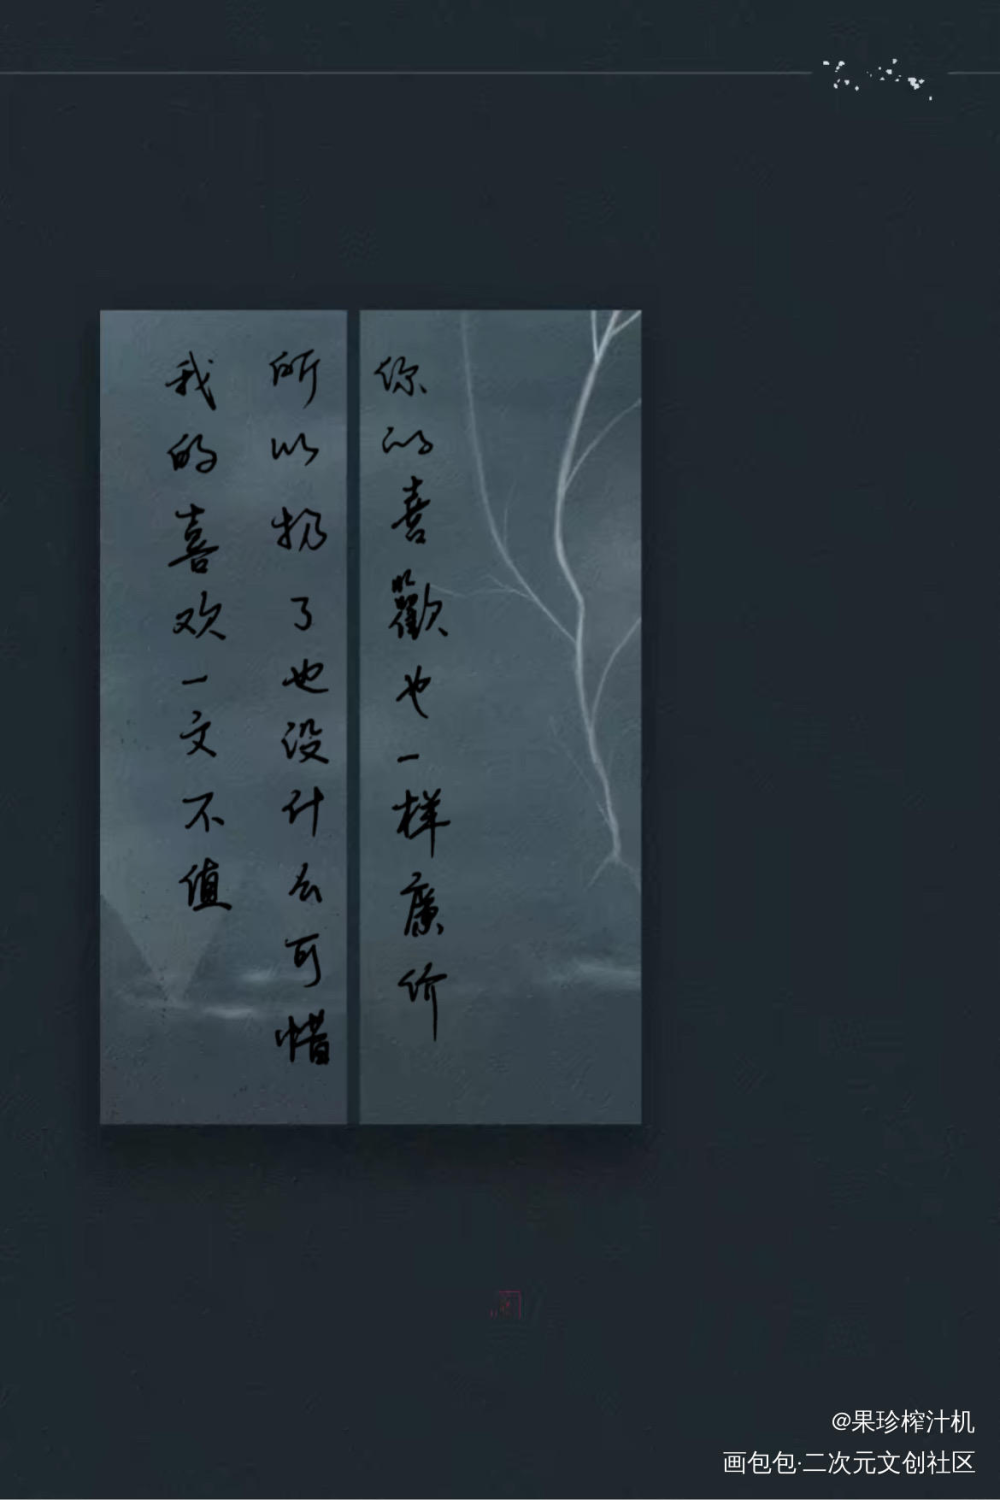 你的喜歡也一样廉价
所以扔了也没什么可惜
我的喜欢一文不值
@果珍榨汁机
画包包·二次元文创社区